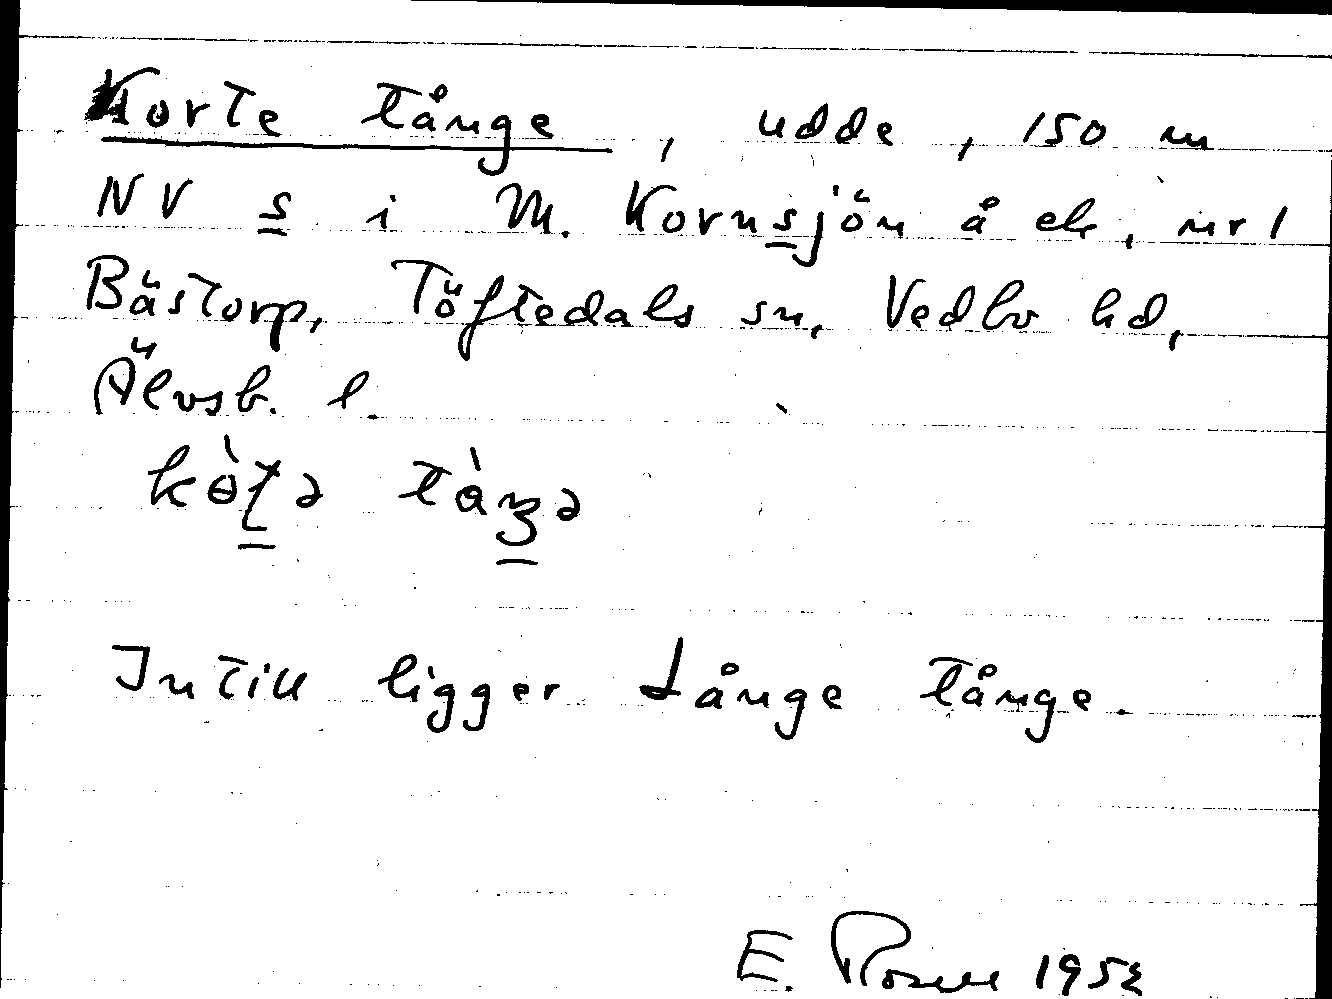 Korte tånge, udde, 150 m
NV s i M. Kornsjön å ek. nr 1
Bästorp, Töftedals sn, Vedbo hd,
Älvsb. l.
Intill ligger Långe tånge.
E. 195